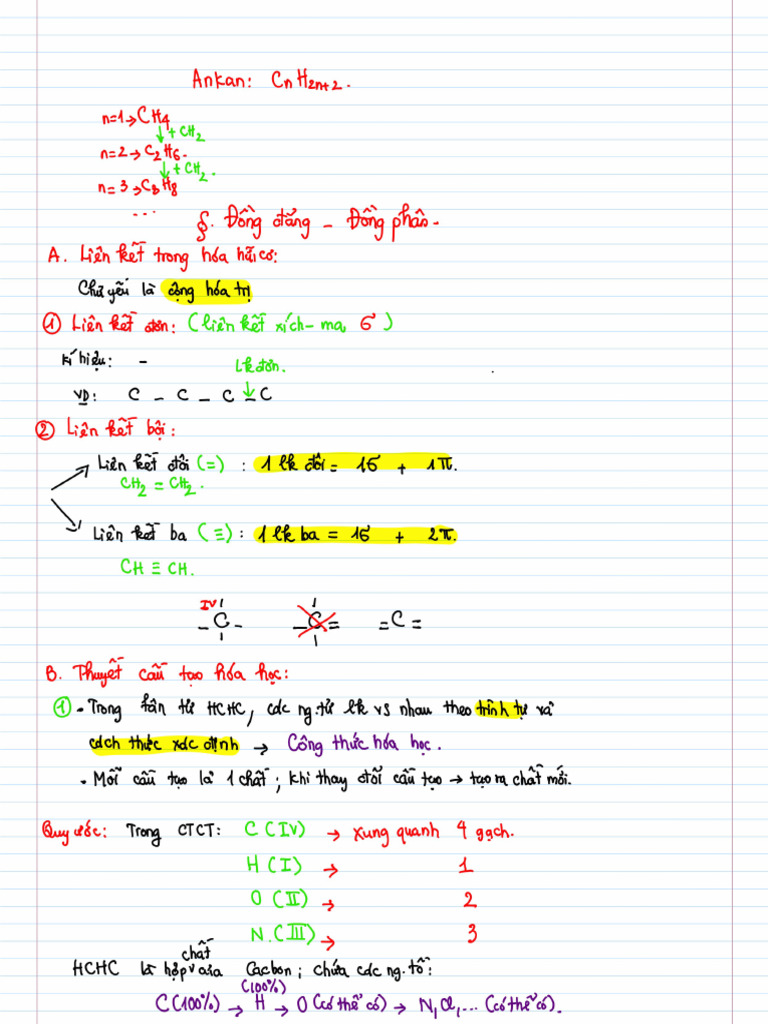 Ankan: CnH2n+2.
n=1→CH4
↓+CH2
n=2→C2H6.
↓+CH2.
n=3→C3H8
...
§. Đồng đẳng - Đồng phân.
A. Liên kết trong hóa hữu cơ:
Chủ yếu là cộng hóa trị
① Liên kết đơn: (liên kết xích-ma σ)
Kí hiệu: -
lk đơn.
VD: C - C - C - C
② Liên kết bội:
Liên kết đôi (=): 1 lk đôi = 1σ + 1π.
CH2 = CH2.
Liên kết ba (≡): 1 lk ba = 1σ + 2π.
CH ≡ CH.
IV
-C- -C= =C=
B. Thuyết cấu tạo hóa học:
① - Trong phân tử HCHC, các ng.tử lk vs nhau theo trình tự và
cách thức xác định → Công thức hóa học.
- Mỗi cấu tạo là 1 chất; khi thay đổi cấu tạo → tạo ra chất mới.
Quy ước: Trong CTCT: C (IV) → xung quanh 4 gạch.
H (I) → 1
O (II) → 2
N. (III) → 3
HCHC là hợp chất của Cacbon; chứa các ng.tố:
C(100%) → H (100%) → O (có thể có) → N, Cl,... (có thể có).